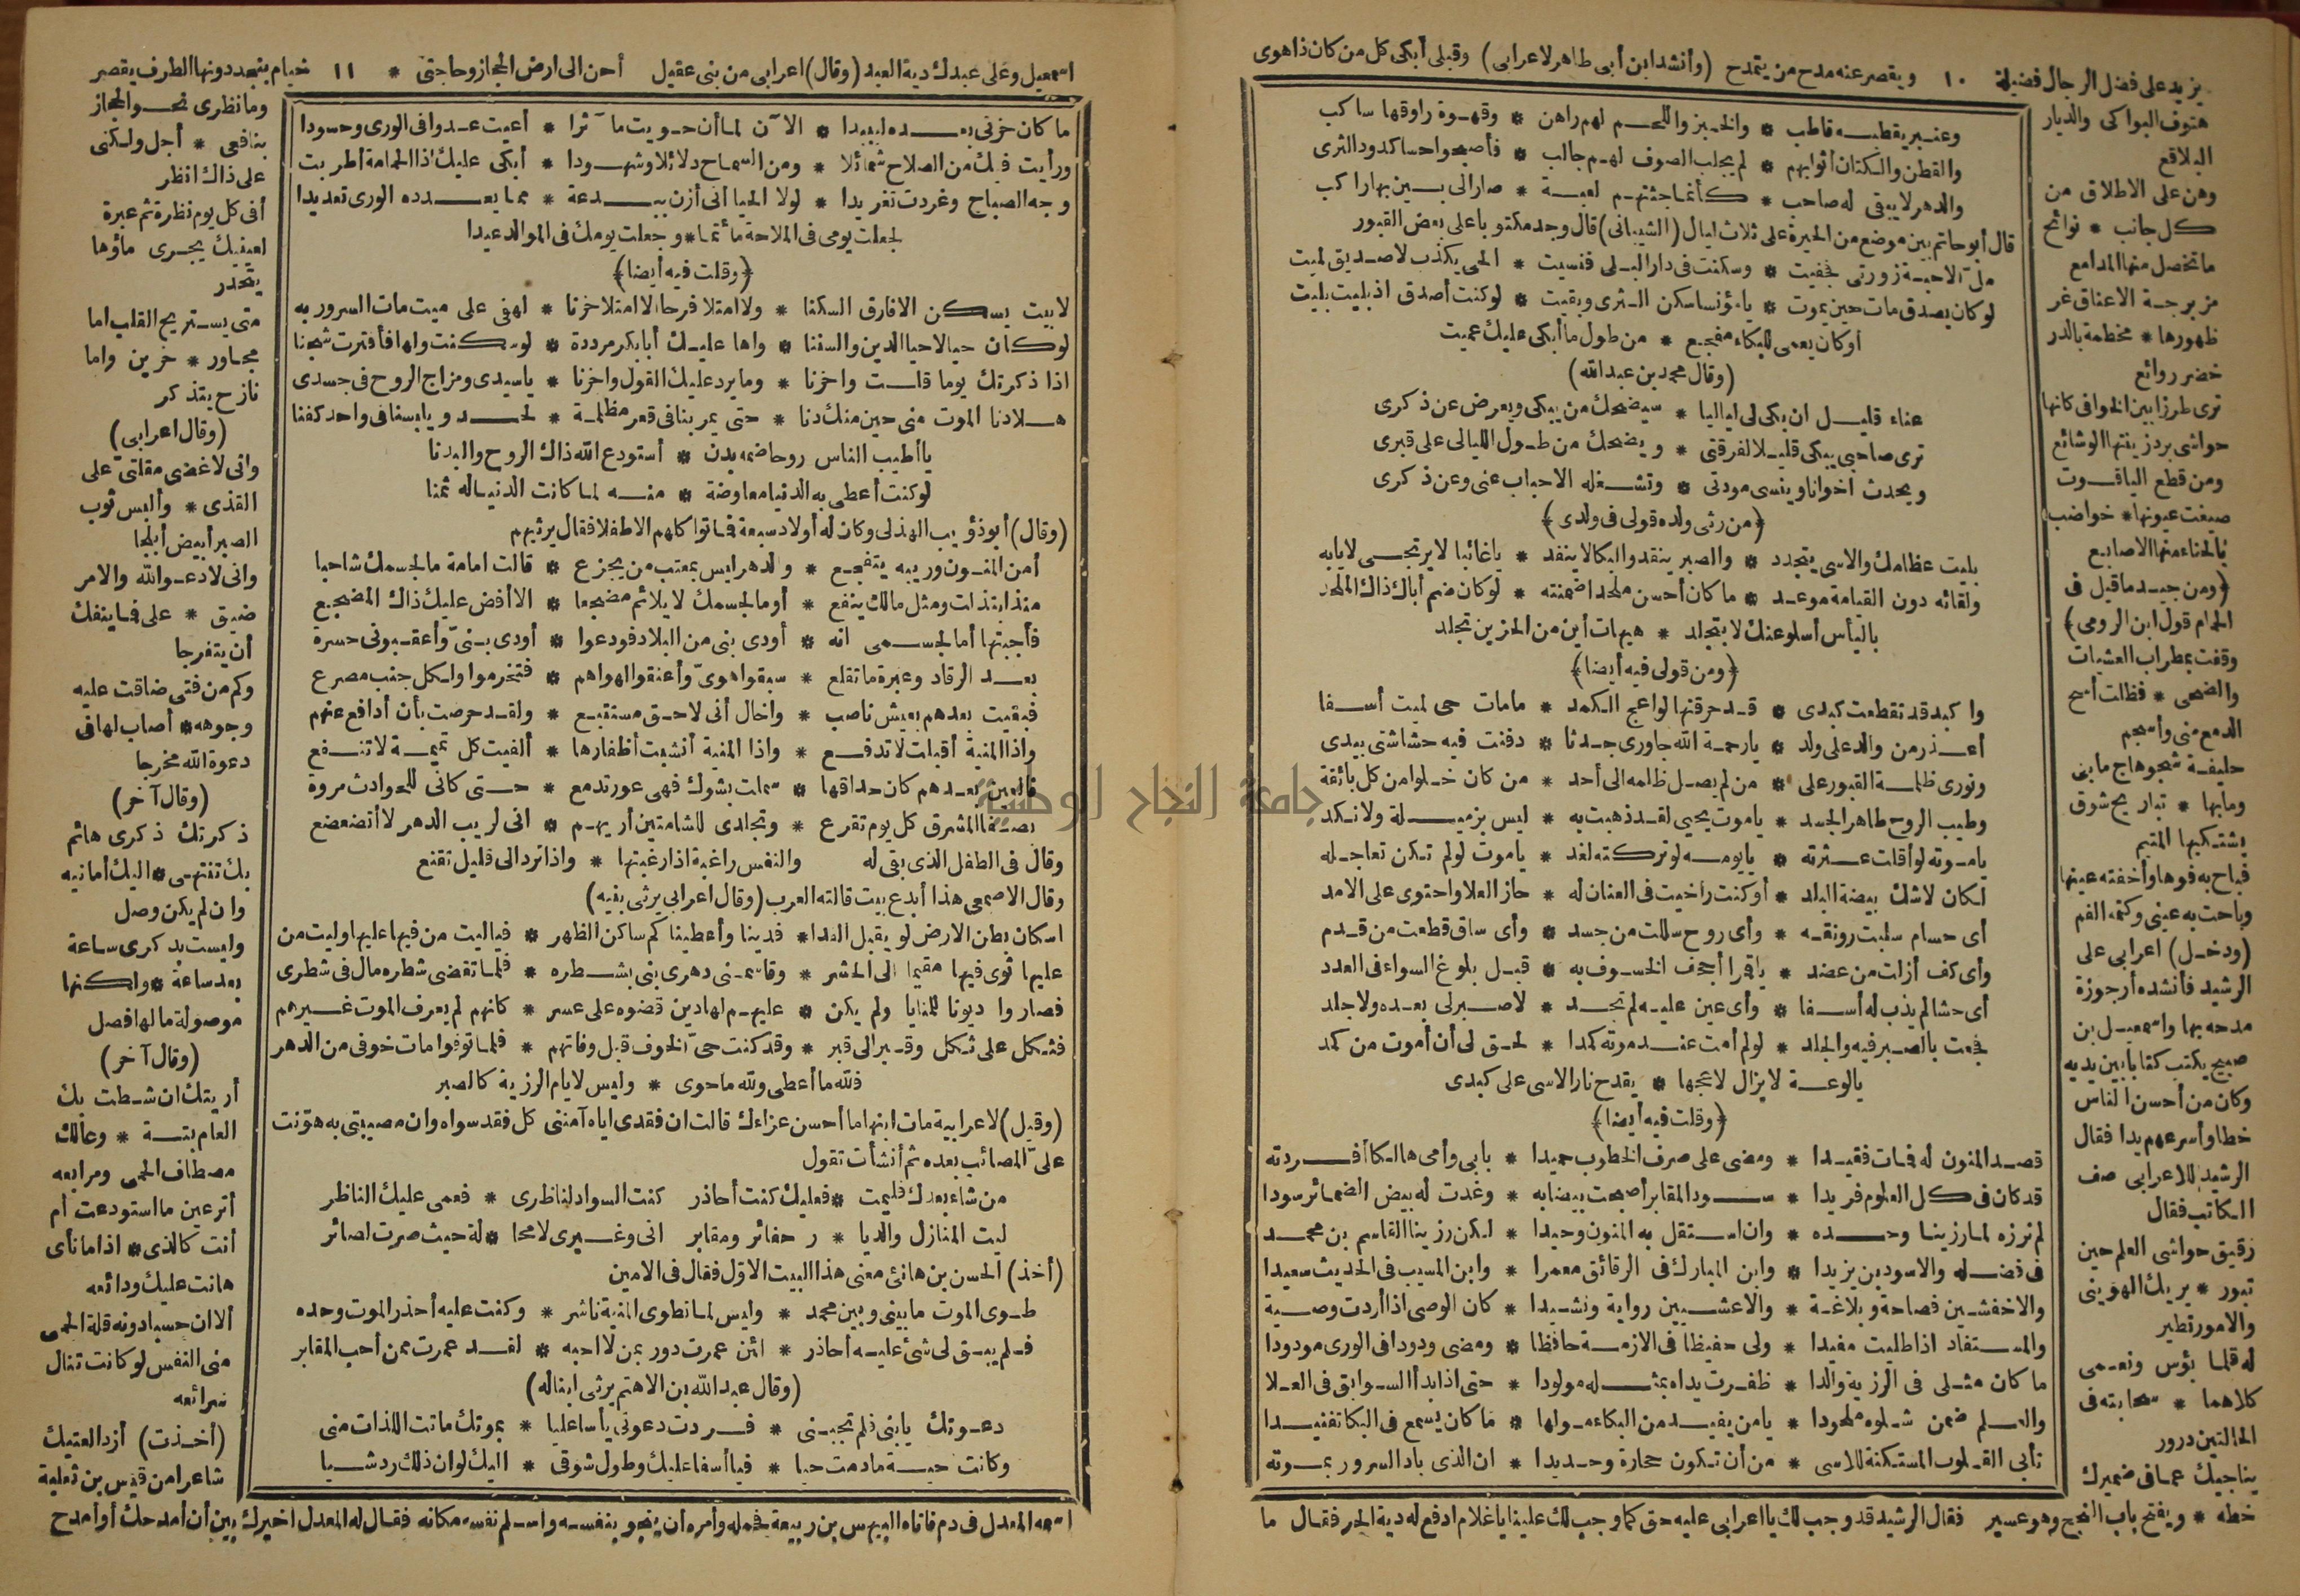 يزيد على فضل الرجال فضيلة ١٠ ويقصر عنه مدح من يتمدح (وأنشد ابن أبى طاهر لاعرابى) وقبلى أبكى كل من كان ذا هوى
هتوف البواكى والديار
البلاقع
وهن على الاطلاق من
كل جانب * نوائح
ما تخضل منها المدامع
مزبرجة الاعناق غر
ظهورها * مخطمة بالدر
خضر روائع
ترى طرزا بين الخوافى كانها
حواشى برد زينتها الوشائع
ومن قطع الياقوت
صيغت عيونها * خواضب
بالحناء منها الاصابع
(ومن جيد ما قيل فى
الحمام قول ابن الرومى)
وقفت بمطراب العشيات
والضحى * فظلت أسح
الدمع منى وأسجم
حليفة شجو هاج ما بى
وما بها * تباريح شوق
يشتكيها المتيم
فباح به فوها وأخفته عينها
وباحت به عينى وكتمه الفم
(ودخل) اعرابى على
الرشيد فأنشده أرجوزة
مدحه بها واسمعيل بن
صبيح يكتب كتابا بين يديه
وكان من أحسن الناس
خطا وأسرعهم يدا فقال
الرشيد للاعرابى صف
الكاتب فقال
رقيق حواشى العلم حين
تبور * يريك الهوينى
والامور تطير
له قلما بؤس ونعمى
كلاهما * سحابته فى
الحالتين درور
يناجيك عما فى ضميرك
خطه * ويفتح باب النجح وهو عسير فقال الرشيد قد وجب لك يا اعرابى عليه حق كما وجب لك علينا يا غلام ادفع له دية الحر فقال ما
وعنبر يقطبه قاطب * والخبز واللحم لهم راهن * وقهوة راووقها ساكب
والقطن والكتان أثوابهم * لم يجلب الصوف لهم جالب * فأصبحوا حسا كدود الثرى
والدهر لا يبقى له صاحب * كأنما جثتهم لعبة * صار الى بين بها راكب
قال أبو حاتم بين موضع من الحيرة على ثلاث ليال (الشيبانى) قال وجد مكتوبا على بعض القبور
مل الاحبة زورتى فخفيت * وسكنت فى دار البلى فنسيت * الحى يكذب لا صديق لميت
لو كان يصدق مات حين يموت * يا مؤنسا سكن الثرى وبقيت * لو كنت أصدق اذ بليت بليت
أو كان يعمى للبكاء مفجع * من طول ما أبكى عليك عميت
(وقال محمد بن عبد الله)
عناء قليل ان بكى لى لياليا * سيضحك من يبكى ويعرض عن ذكرى
ترى صاحبى يبكى قليلا لفرقتى * ويضحك من طول الليالى على قبرى
ويحدث اخوانا وينسى مودتى * وتشغله الاحباب عنى وعن ذكرى
﴿من رثى ولده قولى فى ولدى﴾
بليت عظامك والاسى يتجدد * والصبر ينفد والبكا لا ينفد * يا غائبا لا يرتجى لايابه
ولقائه دون القيامة موعد * ما كان أحسن ملحدا ضمنته * لو كان ضم أباك ذاك الملحد
باليأس أسلو عنك لا بتجلد * هيهات أين من الحزين تجلد
﴿ومن قولى فيه أيضا﴾
وا كبدا قد تقطعت كبدى * قد حرقتها لواعج الكمد * ما مات حى لميت أسفا
أعذر من والد على ولد * يا رحمة الله جاورى جدثا * دفنت فيه حشاشتى بيدى
ونورى ظلمة القبور على * من لم يصل ظلمه الى أحد * من كان خلوا من كل بائقة
وطيب الروح طاهر الجسد * يا موت يحيى لقد ذهبت به * ليس بزميلة ولا نكد
يا موته لو أقلت عثرته * يا يومه لو تركته لغد * يا موت لو لم تكن تعاجله
لكان لا شك بيضة البلد * أو كنت راخيت فى العنان له * حاز العلا واحتوى على الامد
أى حسام سلبت رونقه * وأى روح سللت من جسد * وأى ساق قطعت من قدم
وأى كف أزلت من عضد * يا قمرا أجحف الخسوف به * قبل بلوغ السواء فى العدد
أى حشا لم يذب له أسفا * وأى عين عليه لم تجد * لا صبر لى بعده ولا جلد
فجعت بالصبر فيه والجلد * لو لم أمت عند موته كمدا * لحق لى أن أموت من كمد
يا لوعة لا يزال لاعجها * يقدح نار الاسى على كبدى
﴿وقلت فيه أيضا﴾
قصد المنون له فمات فقيدا * ومضى على صرف الخطوب حميدا * بابى وأمى هالكا أفردته
قد كان فى كل العلوم فريدا * سود المقابر أصبحت بيضا به * وغدت له بيض الضمائر سودا
لم نرزه لما رزينا وحده * وان استقل به المنون وحيدا * لكن رزينا القاسم بن محمد
فى فضله والاسود بن يزيدا * وابن المبارك فى الرقائق معمرا * وابن المسيب فى الحديث سعيدا
والاخفشين فصاحة وبلاغة * والاعشيين رواية ونشيدا * كان الوصى اذا أردت وصية
والمستفاد اذا طلبت مفيدا * ولى حفيظا فى الازمة حافظا * ومضى ودودا فى الورى مودودا
ما كان مثلى فى الرزية والدا * ظفرت يداه بمثله مولودا * حتى اذا بدأ السوابق فى العلا
والعلم ضمن شلوه ملحودا * يا من يفيد من البكاء مولها * ما كان يسمع فى البكا تفنيدا
تأبى القلوب المستكنة للاسى * من أن تكون حجارة وحديدا * ان الذى باد السرور بموته
اسمعيل وعلى عبدك دية العبد (وقال) اعرابى من بنى عقيل أحن الى ارض الحجاز وحاجتى * ١١ خيام بنجد دونها الطرف يقصر
ما كان حزنى بعده ليبيدا * الآن لما أن حويت مآثرا * أعيت عدوا فى الورى وحسودا
ورأيت فيك من الصلاح شمائلا * ومن السماح دلائلا وشهودا * أبكى عليك اذا الحمامة أطربت
وجه الصباح وغردت تغريدا * لولا الحيا أنى أزن ببدعة * مما يعدده الورى تعديدا
لجعلت يومى فى الملاحة مأتما * وجعلت يومك فى الموالد عيدا
﴿وقلت فيه أيضا﴾
لا بيت يسكن الا فارق السكنا * ولا امتلا فرحا الا امتلا حزنا * لهفى على ميت مات السرور به
لو كان حيا لاحيا الدين والسننا * واها عليك أبا بكر مرددة * لو سكنت ولها فأفترت شجنا
اذا ذكرتك يوما قلت واحزنا * وما يرد عليك القول واحزنا * يا سيدى ومزاج الروح فى جسدى
هلا دنا الموت منى حين منك دنا * حتى يمر بنا فى قعر مظلمة * لحد ويلبسنا فى واحد كفنا
يا أطيب الناس روحا ضمه بدن * أستودع الله ذاك الروح والبدنا
لو كنت أعطى به الدنيا معاوضة * منه لما كانت الدنيا له ثمنا
(وقال) أبو ذؤيب الهذلى وكان له أولاد سبعة فماتوا كلهم الا طفلا فقال يرثيهم
أمن المنون وريبه يتفجع * والدهر ليس بمعتب من يجزع * قالت امامة ما لجسمك شاحبا
منذ ابتذلت ومثل مالك ينفع * أو ما لجسمك لا يلائم مضجعا * الا أقض عليك ذاك المضجع
فأجبتها أما لجسمى انه * أودى بنى من البلاد فودعوا * أودى بنىّ وأعقبونى حسرة
بعد الرقاد وعبرة ما تقلع * سبقوا هوىّ وأعنقوا لهواهم * فتخرموا ولكل جنب مصرع
فبقيت بعدهم بعيش ناصب * واخال أنى لاحق مستتبع * ولقد حرصت بأن أدافع عنهم
واذا المنية أقبلت لا تدفع * واذا المنية أنشبت أظفارها * ألفيت كل تميمة لا تنفع
فالعين بعدهم كان حداقها * سملت بشوك فهى عور تدمع * حتى كانى للحوادث مروة
بصفا المشرق كل يوم تقرع * وتجلدى للشامتين أريهم * انى لريب الدهر لا أتضعضع
وقال فى الطفل الذى بقى له والنفس راغبة اذا رغبتها * واذا ترد الى قليل تقنع
وقال الاصمعى هذا أبدع بيت قالته العرب (وقال اعرابى يرثى بنيه)
اسكان بطن الارض لو يقبل الفدا * فدينا وأعطينا كم ساكن الظهر * فياليت من فيها عليها وليت من
عليها ثوى فيها مقيما الى الحشر * وقاسمنى دهرى بنى بشطره * فلما تقضى شطره مال فى شطرى
فصاروا ديونا للمنايا ولم يكن * عليهم لها دين قضوه على عسر * كانهم لم يعرف الموت غيرهم
فثكل على ثكل وقبر الى قبر * وقد كنت حىّ الخوف قبل وفاتهم * فلما توفوا مات خوفى من الدهر
فلله ما أعطى ولله ما حوى * وليس لايام الرزية كالصبر
(وقيل) لاعرابية مات ابنها ما أحسن عزاءك قالت ان فقدى اياه آمننى كل فقد سواه وان مصيبتى به هوّنت
علىّ المصائب بعده ثم أنشأت تقول
من شاء بعدك فليمت * فعليك كنت أحاذر كنت السواد لناظرى * فعمى عليك الناظر
ليت المنازل والديا * ر حفائر ومقابر انى وغيرى لا محا * لة حيث صرت لصائر
(أخذ) الحسن بن هانئ معنى هذا البيت الاول فقال فى الامين
طوى الموت ما بينى وبين محمد * وليس لما تطوى المنية ناشر * وكنت عليه أحذر الموت وحده
فلم يبق لى شئ عليه أحاذر * لئن عمرت دور بمن لا احبه * لقد عمرت ممن أحب المقابر
(وقال عبد الله بن الاهتم يرثى ابنا له)
دعوتك يا بنى فلم تجبنى * فردت دعوتى يأسا عليا * بموتك ماتت اللذات منى
وكانت حية ما دمت حيا * فيا أسفا عليك وطول شوقى * اليك لو ان ذلك رد شيا
وما نظرى نحو الحجاز
بنافعى * أجل ولكنى
على ذاك انظر
أفى كل يوم نظرة ثم عبرة
لعينيك يجرى ماؤها
يتحدر
متى يستريح القلب اما
مجاور * حزين واما
نازح يتذكر
(وقال اعرابى)
وانى لاغضى مقلتىّ على
القذى * وألبس ثوب
الصبر أبيض أبلجا
وانى لادعو الله والامر
ضيق * على فما ينفك
أن يتفرجا
وكم من فتى ضاقت عليه
وجوهه * أصاب لها فى
دعوة الله مخرجا
(وقال آخر)
ذكرتك ذكرى هائم
بك تنتهى * اليك أمانيه
وان لم يكن وصل
وليست بذكرى ساعة
بعد ساعة * ولكنها
موصولة ما لها فصل
(وقال آخر)
أريتك ان شطت بك
العام بتة * وعالك
مصطاف الحمى ومرابعه
أترعين ما استودعت أم
أنت كالذى * اذا ما نأى
هانت عليك ودائعه
ألا ان حسيا دونه قلة الحمى
منى النفس لو كانت تنال
شرائعه
(أخذت) أزد العتيك
شاعرا من قيس بن ثعلبة
اسمه المعدل فى دم فاتاه البيهس بن ربيعة فحمله وأمره أن ينجو بنفسه وأسلم نفسه مكانه فقال له المعدل اخيرك بين أن أمدحك أو أمدح
جامعة النجاح الوطنية